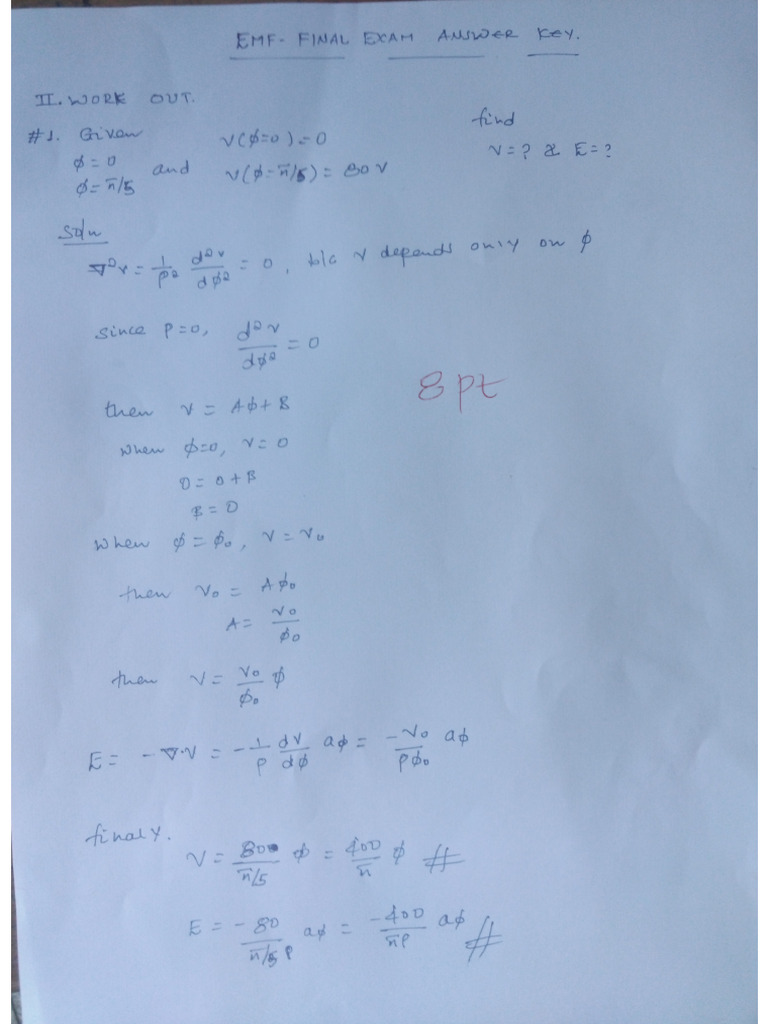 EMF- FINAL EXAM ANSWER KEY.
II. WORK OUT.
#1. Given V(φ=0)=0 find
φ=0 and V(φ=π/5)=80V V=? & E=?
φ=π/5
Soln
∇²V = 1/ρ² d²V/dφ² = 0, b/c V depends only on φ
since ρ=0, d²V/dφ² = 0
8pt
then V = Aφ+B
when φ=0, V=0
0=0+B
B=0
when φ=φ₀, V=V₀
then V₀ = Aφ₀
A= V₀/φ₀
then V= V₀/φ₀ φ
E= -∇·V = -1/ρ dV/dφ aφ = -V₀/ρφ₀ aφ
finaly.
V= 80/π/5 φ = 400/π φ #
E= -80/π/5 ρ aφ = -400/πρ aφ #